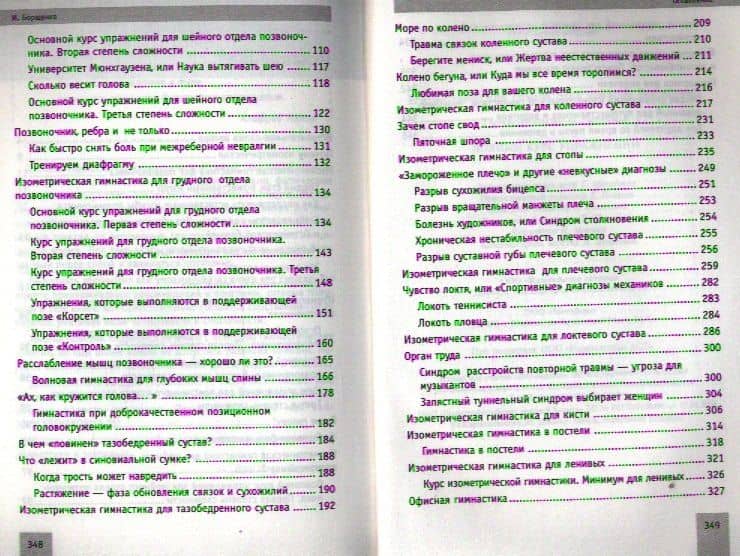 И. Борщенко
Основной курс упражнений для шейного отдела позвоноч-
ника. Вторая степень сложности 110
Университет Мюнхгаузена, или Наука вытягивать шею 117
Сколько весит голова 118
Основной курс упражнений для шейного отдела
позвоночника. Третья степень сложности 122
Позвоночник, ребра и не только 130
Как быстро снять боль при межреберной невралгии 131
Тренируем диафрагму 132
Изометрическая гимнастика для грудного отдела
позвоночника 134
Основной курс упражнений для грудного отдела
позвоночника. Первая степень сложности 134
Курс упражнений для грудного отдела позвоночника.
Вторая степень сложности 143
Курс упражнений для грудного отдела позвоночника. Третья
степень сложности 148
Упражнения, которые выполняются в поддерживающей
позе «Корсет» 151
Упражнения, которые выполняются в поддерживающей
позе «Контроль» 160
Расслабление мышц позвоночника — хорошо ли это? 165
Волновая гимнастика для глубоких мышц спины 166
«Ах, как кружится голова... » 178
Гимнастика при доброкачественном позиционном
головокружении 182
В чем «повинен» тазобедренный сустав? 184
Что «лежит» в синовиальной сумке? 188
Когда трость может навредить 188
Растяжение — фаза обновления связок и сухожилий 190
Изометрическая гимнастика для тазобедренного сустава 192
348
Море по колено 209
Травма связок коленного сустава 210
Берегите мениск, или Жертва неестественных движений 211
Колено бегуна, или Куда мы все время торопимся? 214
Любимая поза для вашего колена 216
Изометрическая гимнастика для коленного сустава 217
Зачем стопе свод 231
Пяточная шпора 233
Изометрическая гимнастика для стопы 235
«Замороженное плечо» и другие «невкусные» диагнозы 249
Разрыв сухожилия бицепса 251
Разрыв вращательной манжеты плеча 253
Болезнь художников, или Синдром столкновения 254
Хроническая нестабильность плечевого сустава 255
Разрыв суставной губы плечевого сустава 256
Изометрическая гимнастика для плечевого сустава 259
Чувство локтя, или «Спортивные» диагнозы механиков 282
Локоть теннисиста 283
Локоть пловца 284
Изометрическая гимнастика для локтевого сустава 286
Орган труда 300
Синдром расстройств повторной травмы — угроза для
музыкантов 300
Запястный туннельный синдром выбирает женщин 304
Изометрическая гимнастика для кисти 306
Изометрическая гимнастика в постели 314
Гимнастика в постели 318
Изометрическая гимнастика для ленивых 321
Курс изометрической гимнастики. Минимум для ленивых 326
Офисная гимнастика 327
349